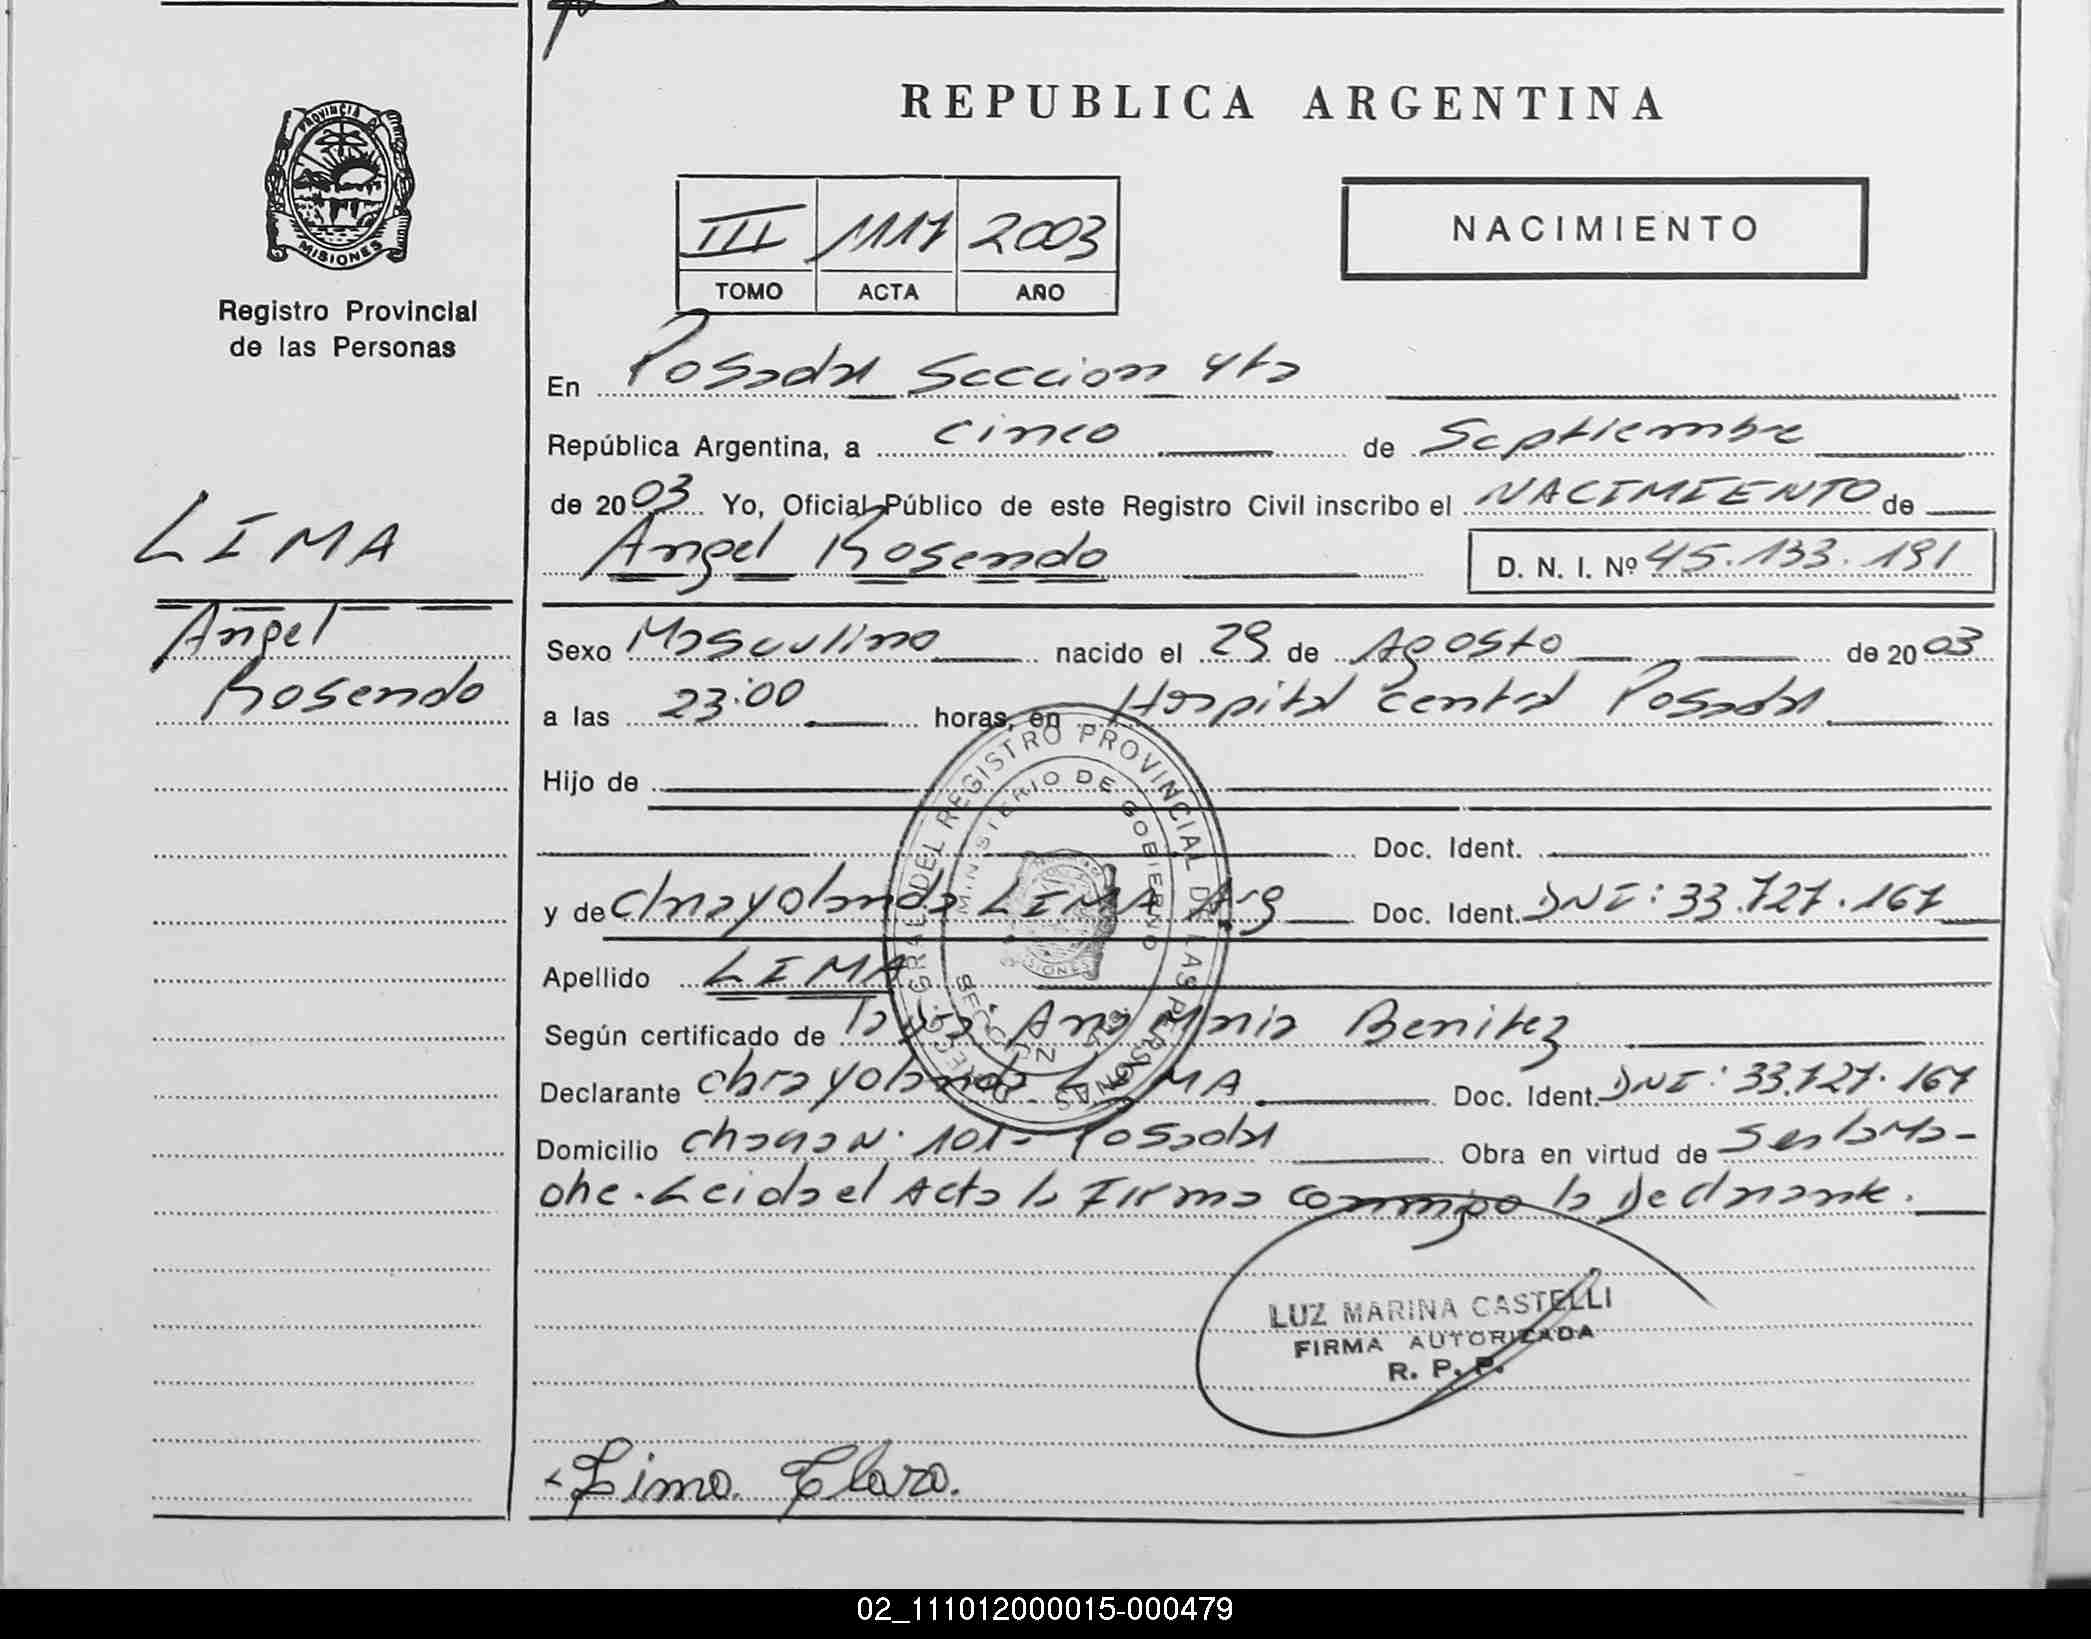 REPUBLICA ARGENTINA
PROVINCIA D
MISIONES
Registro Provincial
de las Personas
III 1117 2003
TOMO ACTA AÑO
NACIMIENTO
En Posadas Seccion 4ta
República Argentina, a cinco de Septiembre
de 2003 Yo, Oficial Público de este Registro Civil inscribo el NACIMIENTO de
Angel Rosendo D. N. I. Nº 45.133.191
LIMA
Angel
Rosendo
Sexo Masculino nacido el 29 de Agosto de 2003
a las 23:00 horas, en Hospital Central Posadas
Hijo de
Doc. Ident.
y de Clara Yolanda LIMA Arg Doc. Ident. DNI: 33.727.167
Apellido LIMA
Según certificado de Ana Maria Benitez
Declarante Clara Yolanda LIMA Doc. Ident. DNI: 33.727.167
Domicilio N. 101 - Posadas Obra en virtud de
Leida el Acta la Firma conmigo la Declarante.
DIRECC. GRAL DEL REGISTRO PROVINCIAL DE LAS PERSONAS
MINISTERIO DE GOBIERNO
SECCION
MISIONES
LUZ MARINA CASTELLI
FIRMA AUTORIZADA
R. P. P.
Lima Clara.
02_111012000015-000479